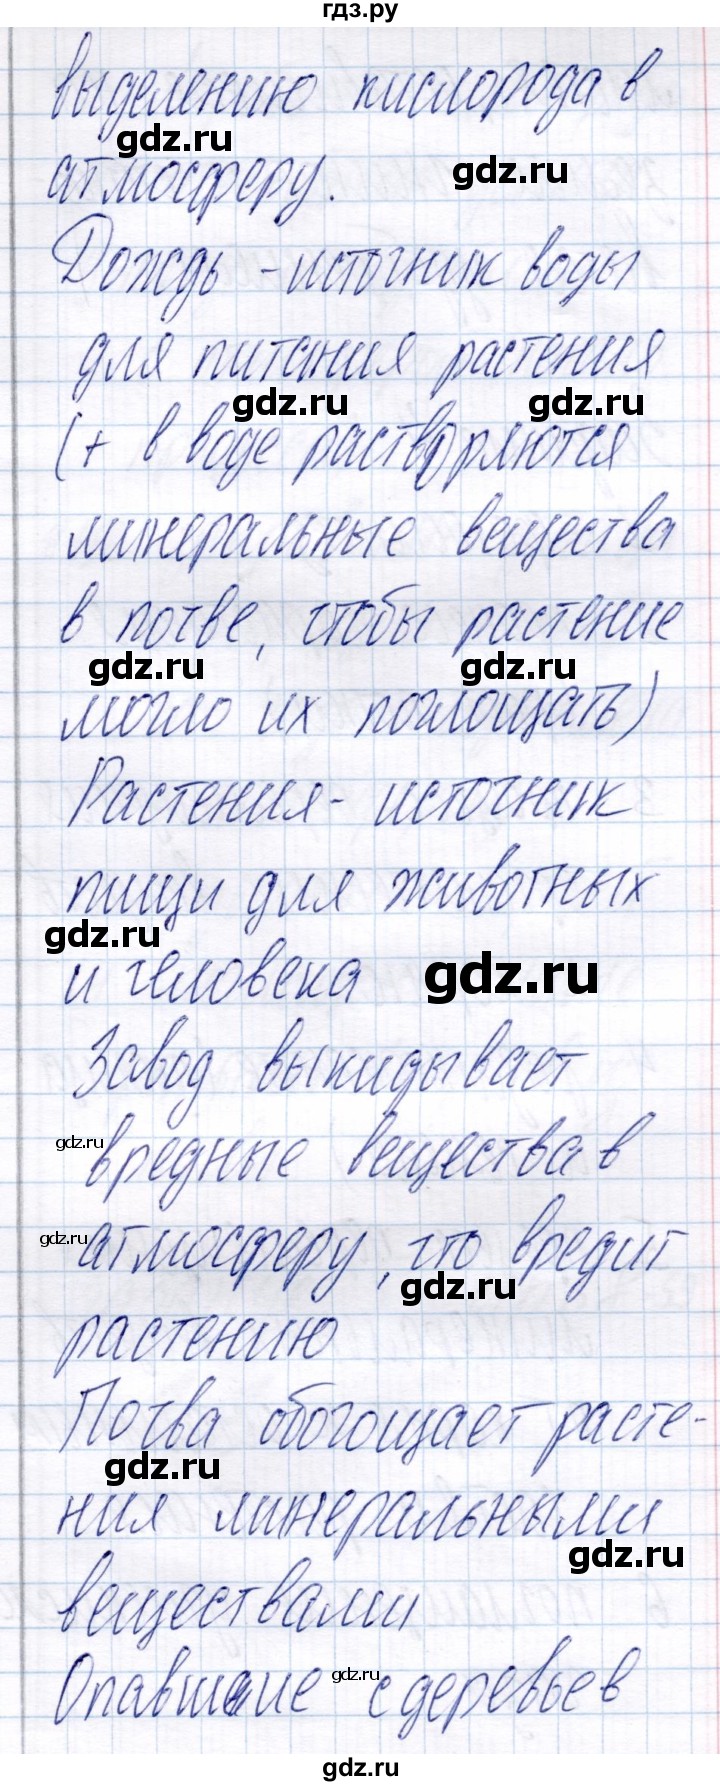 гдз.ру
выделению кислорода в
gdz.ru
атмосферу.
gdz.ru
Дождь - источник воды
для питания растения
gdz.ru gdz.ru
(+ в воде растворяются
минеральные вещества
в почве, чтобы растение
gdz.ru gdz.ru
могло их поглощать)
Растения - источник
пищи для животных
gdz.ru
и человека gdz.ru
Завод выкидывает
gdz.ru
вредные вещества в
gdz.ru
атмосферу, что вредит
gdz.ru
растению
Почва обогощает расте-
gdz.ru
ния минеральными
gdz.ru
веществами
Опавшие gdz.ru с деревьев
gdz.ru